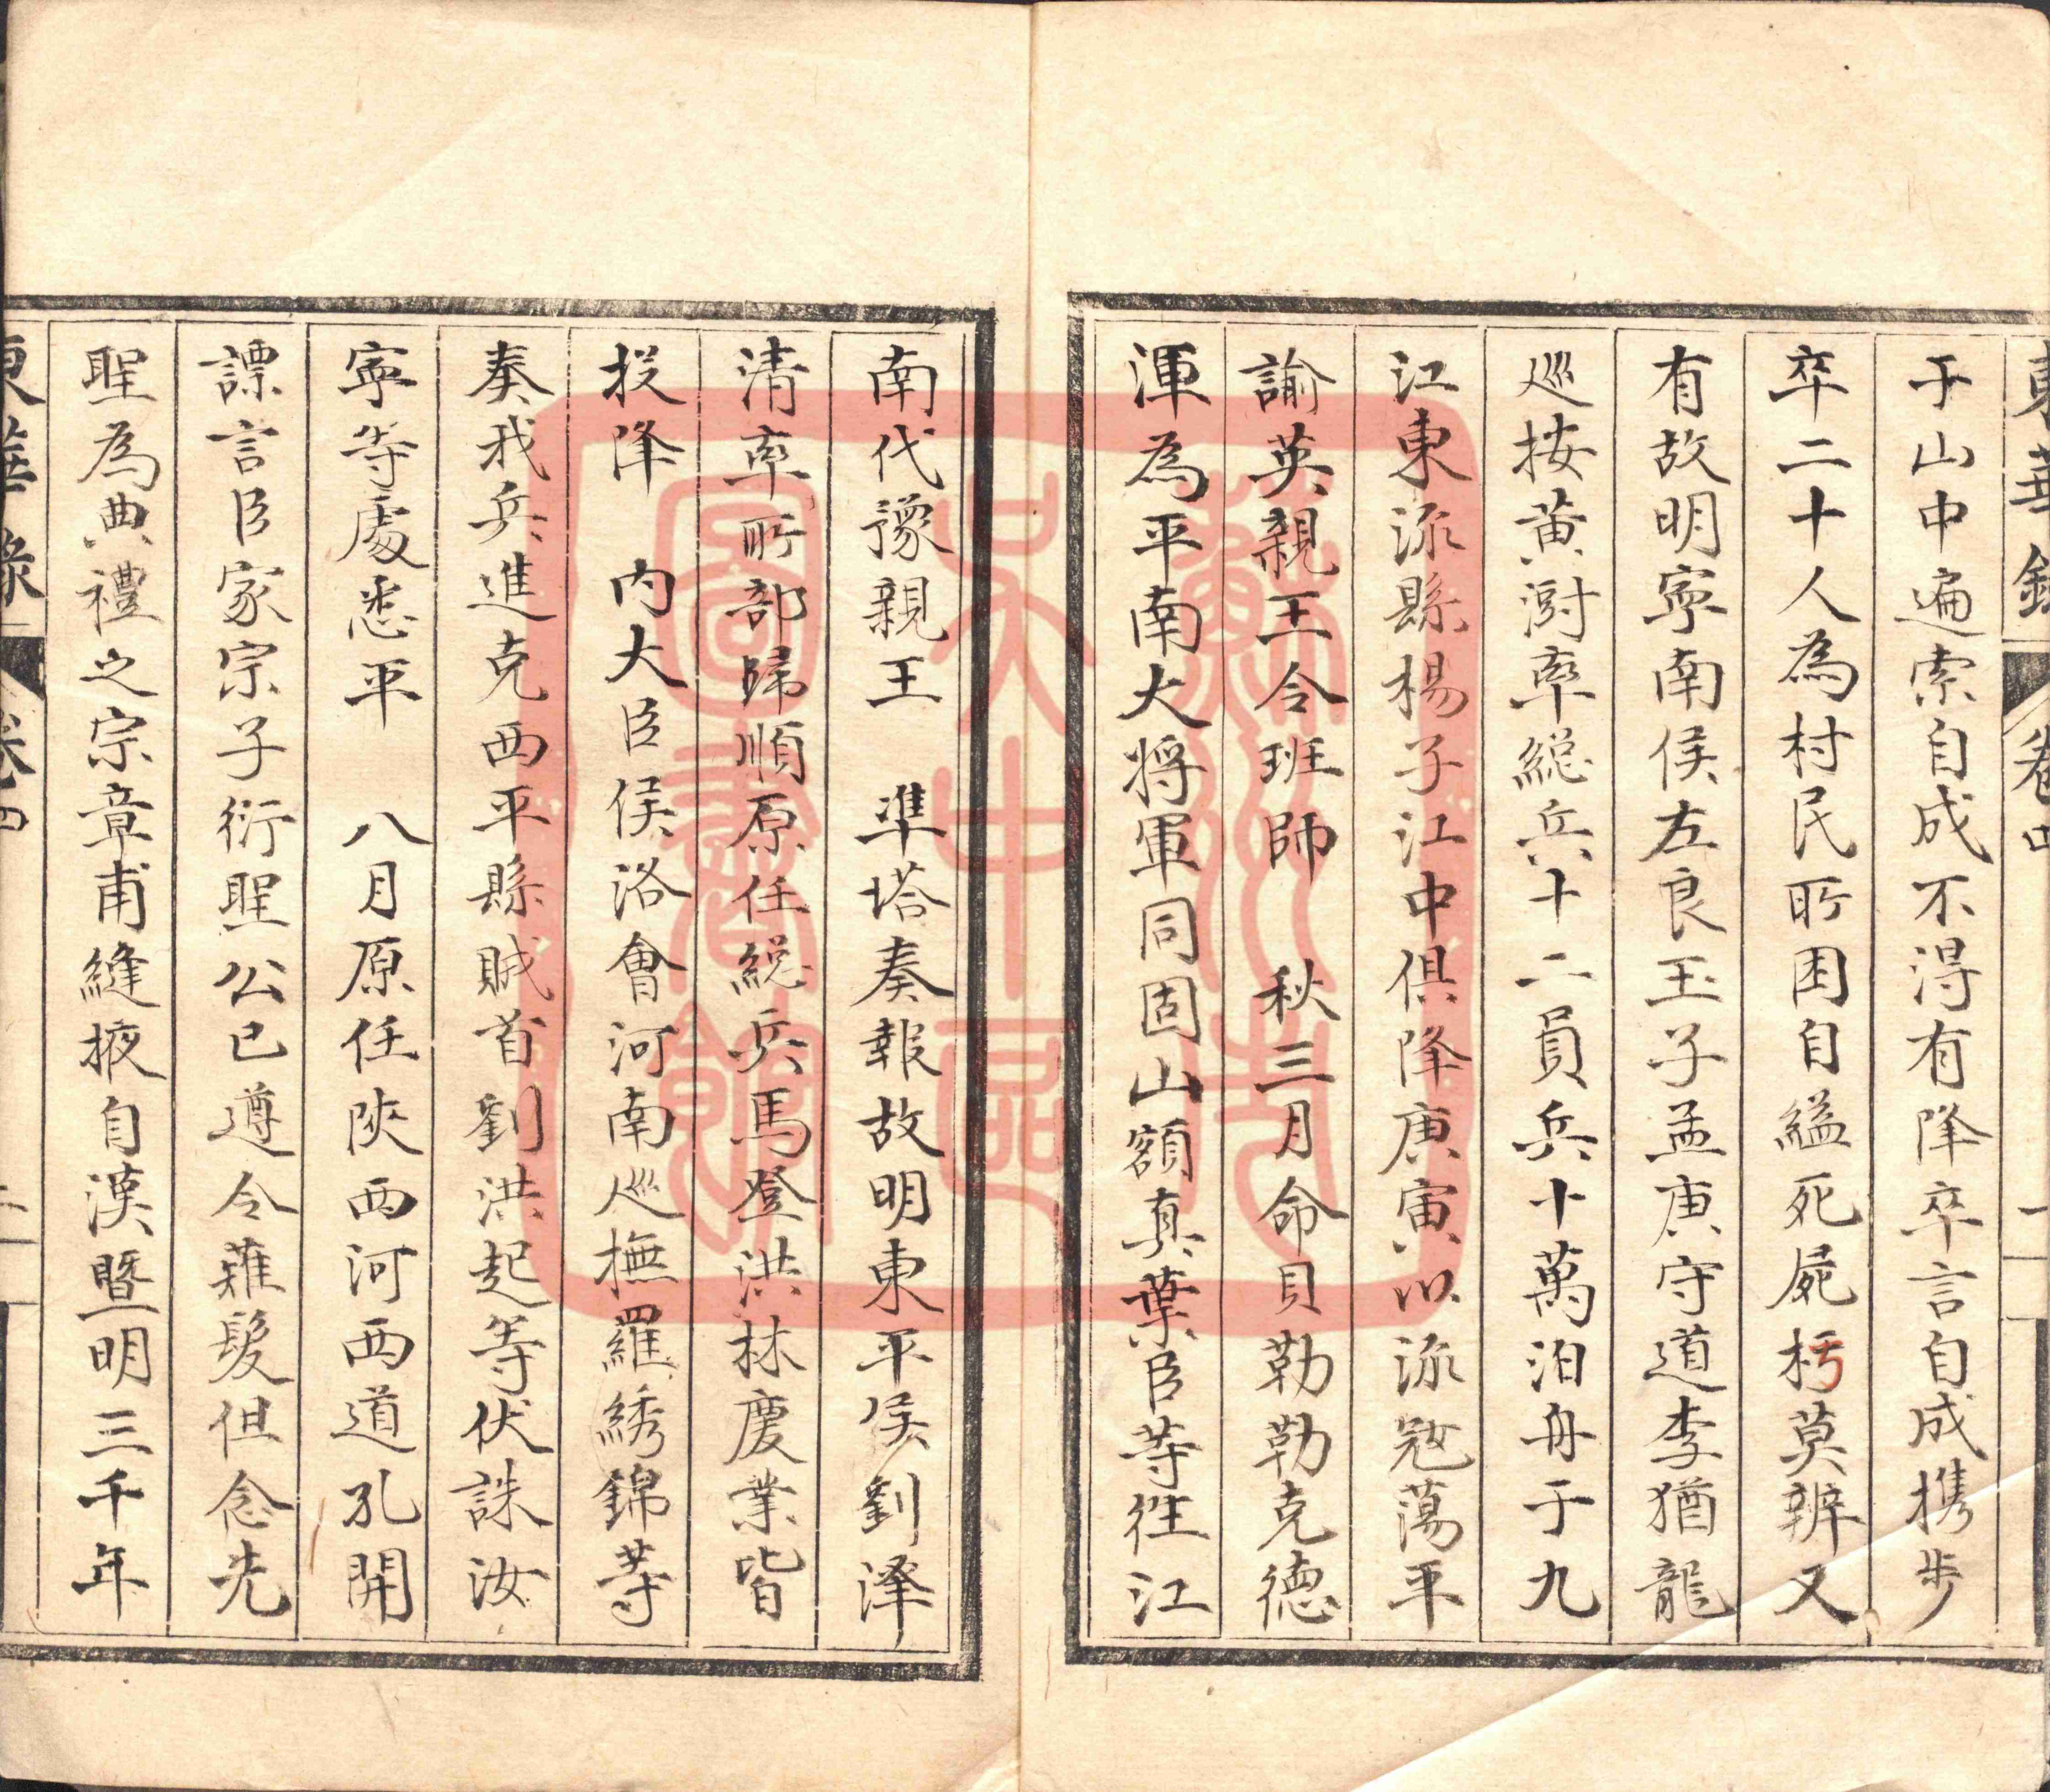 東華錄 卷四
于山中遍索自成不得有降卒言自成携步
卒二十人為村民所困自縊死屍朽莫辨又
有故明寧南侯左良玉子孟庚守道李猶龍
巡按黃澍率総兵十二員兵十萬泊舟于九
江東流縣楊子江中俱降庚寅以流寇蕩平
諭英親王令班師 秋三月命貝勒勒克德
渾為平南大將軍同固山額真葉臣等往江
南代豫親王 準塔奏報故明東平侯劉澤
清率所部歸順原任総兵馬登洪林慶業皆
投降 內大臣侯洛會河南巡撫羅綉錦等
奏我兵進克西平縣賊首劉洪起等伏誅汝
寧等處悉平 八月原任陝西河西道孔開
謤言臣家宗子衍聖公已遵令薙髮但念先
聖為典禮之宗章甫縫掖自漢暨明三千年
東華錄 卷四
蘇州市
吳中區
圖書館